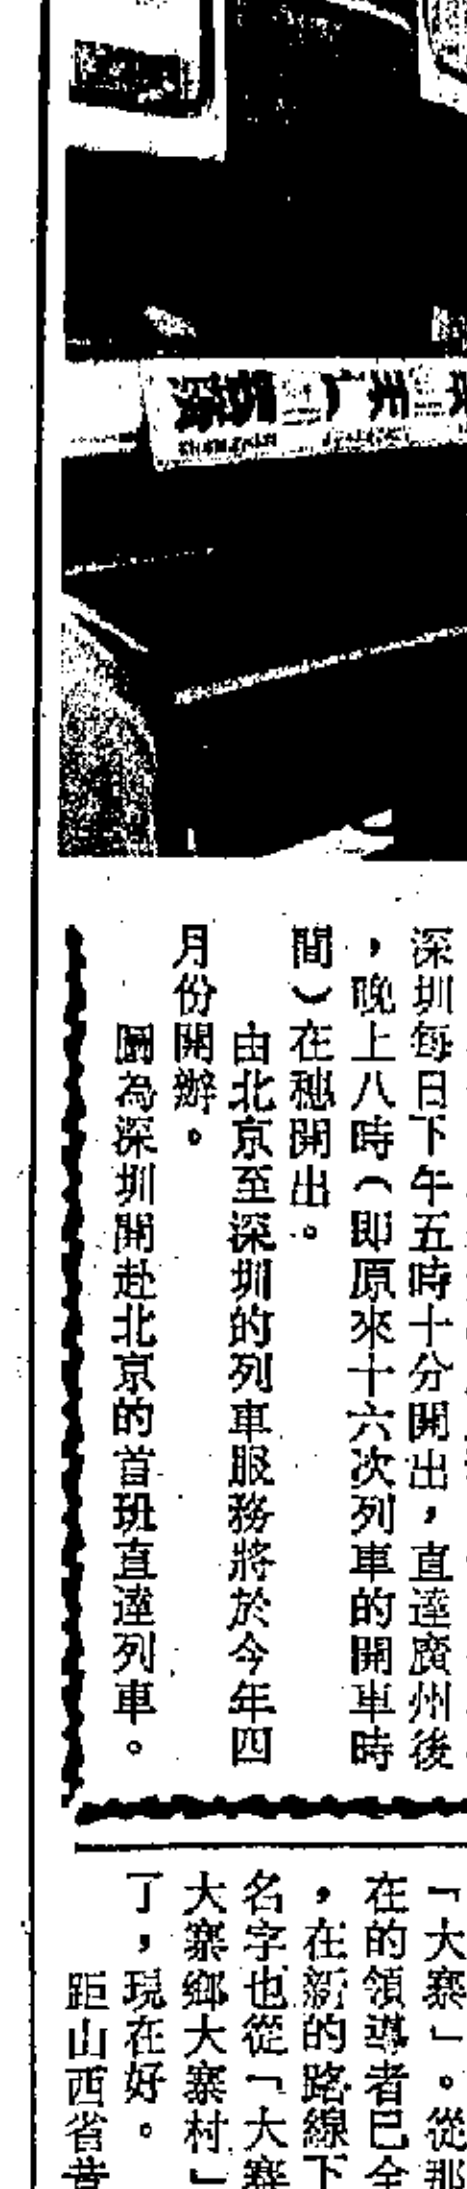 深圳 广州
深圳每日下午五時十分開出，直達廣州後
，晚上八時（即原來十六次列車的開車時
間）在穗開出。
由北京至深圳的列車服務將於今年四
月份開辦。
圖為深圳開赴北京的首班直達列車。
「大寨」。從那
在的領導者已全
，在新的路線下
名字也從「大寨
大寨鄉大寨村」
了，現在好。
距山西省昔